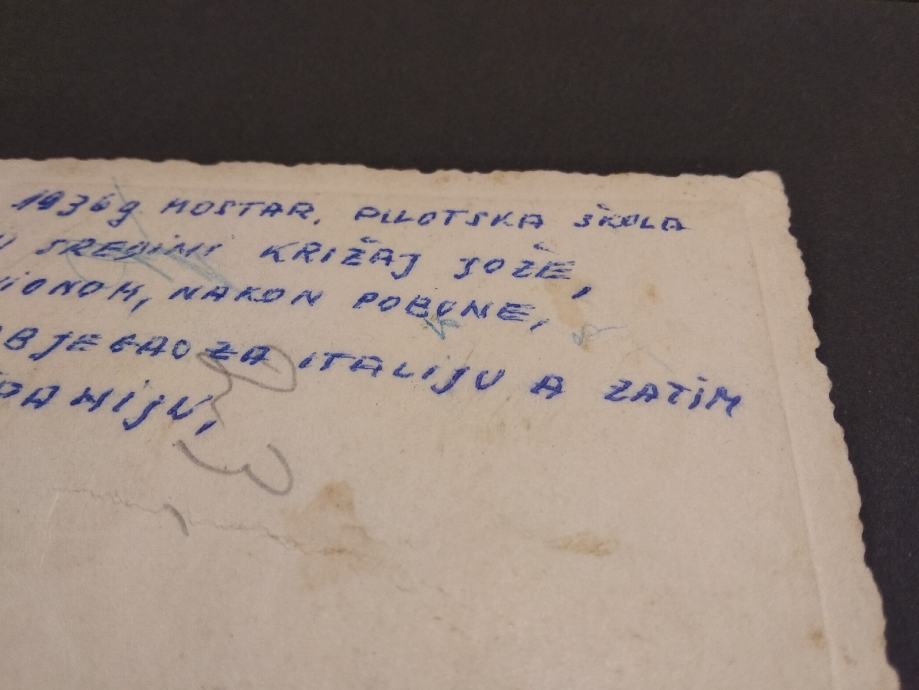 1936g MOSTAR, PILOTSKA ŠKOLA
U SREDINI KRIŽAJ JOŽE,
VIONOM, NAKON POBUNE,
BJEGAO ZA ITALIJU A ZATIM
ŠPANIJU,